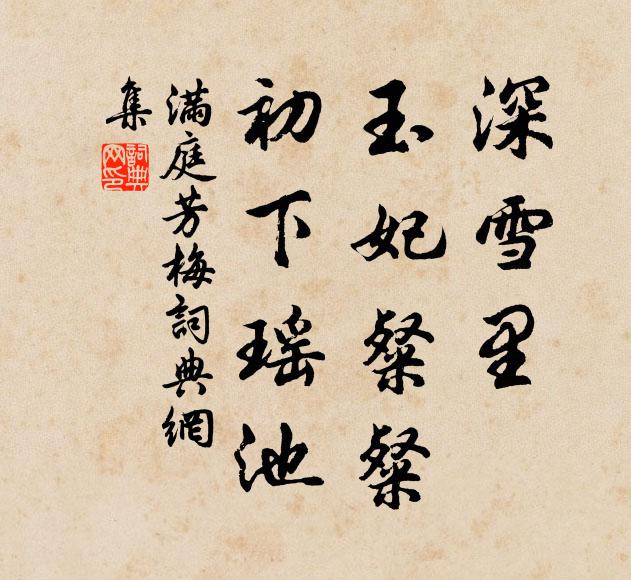 深雪里
玉妃粲粲
初下瑶池
满庭芳梅詞典網
集
詞典
网印